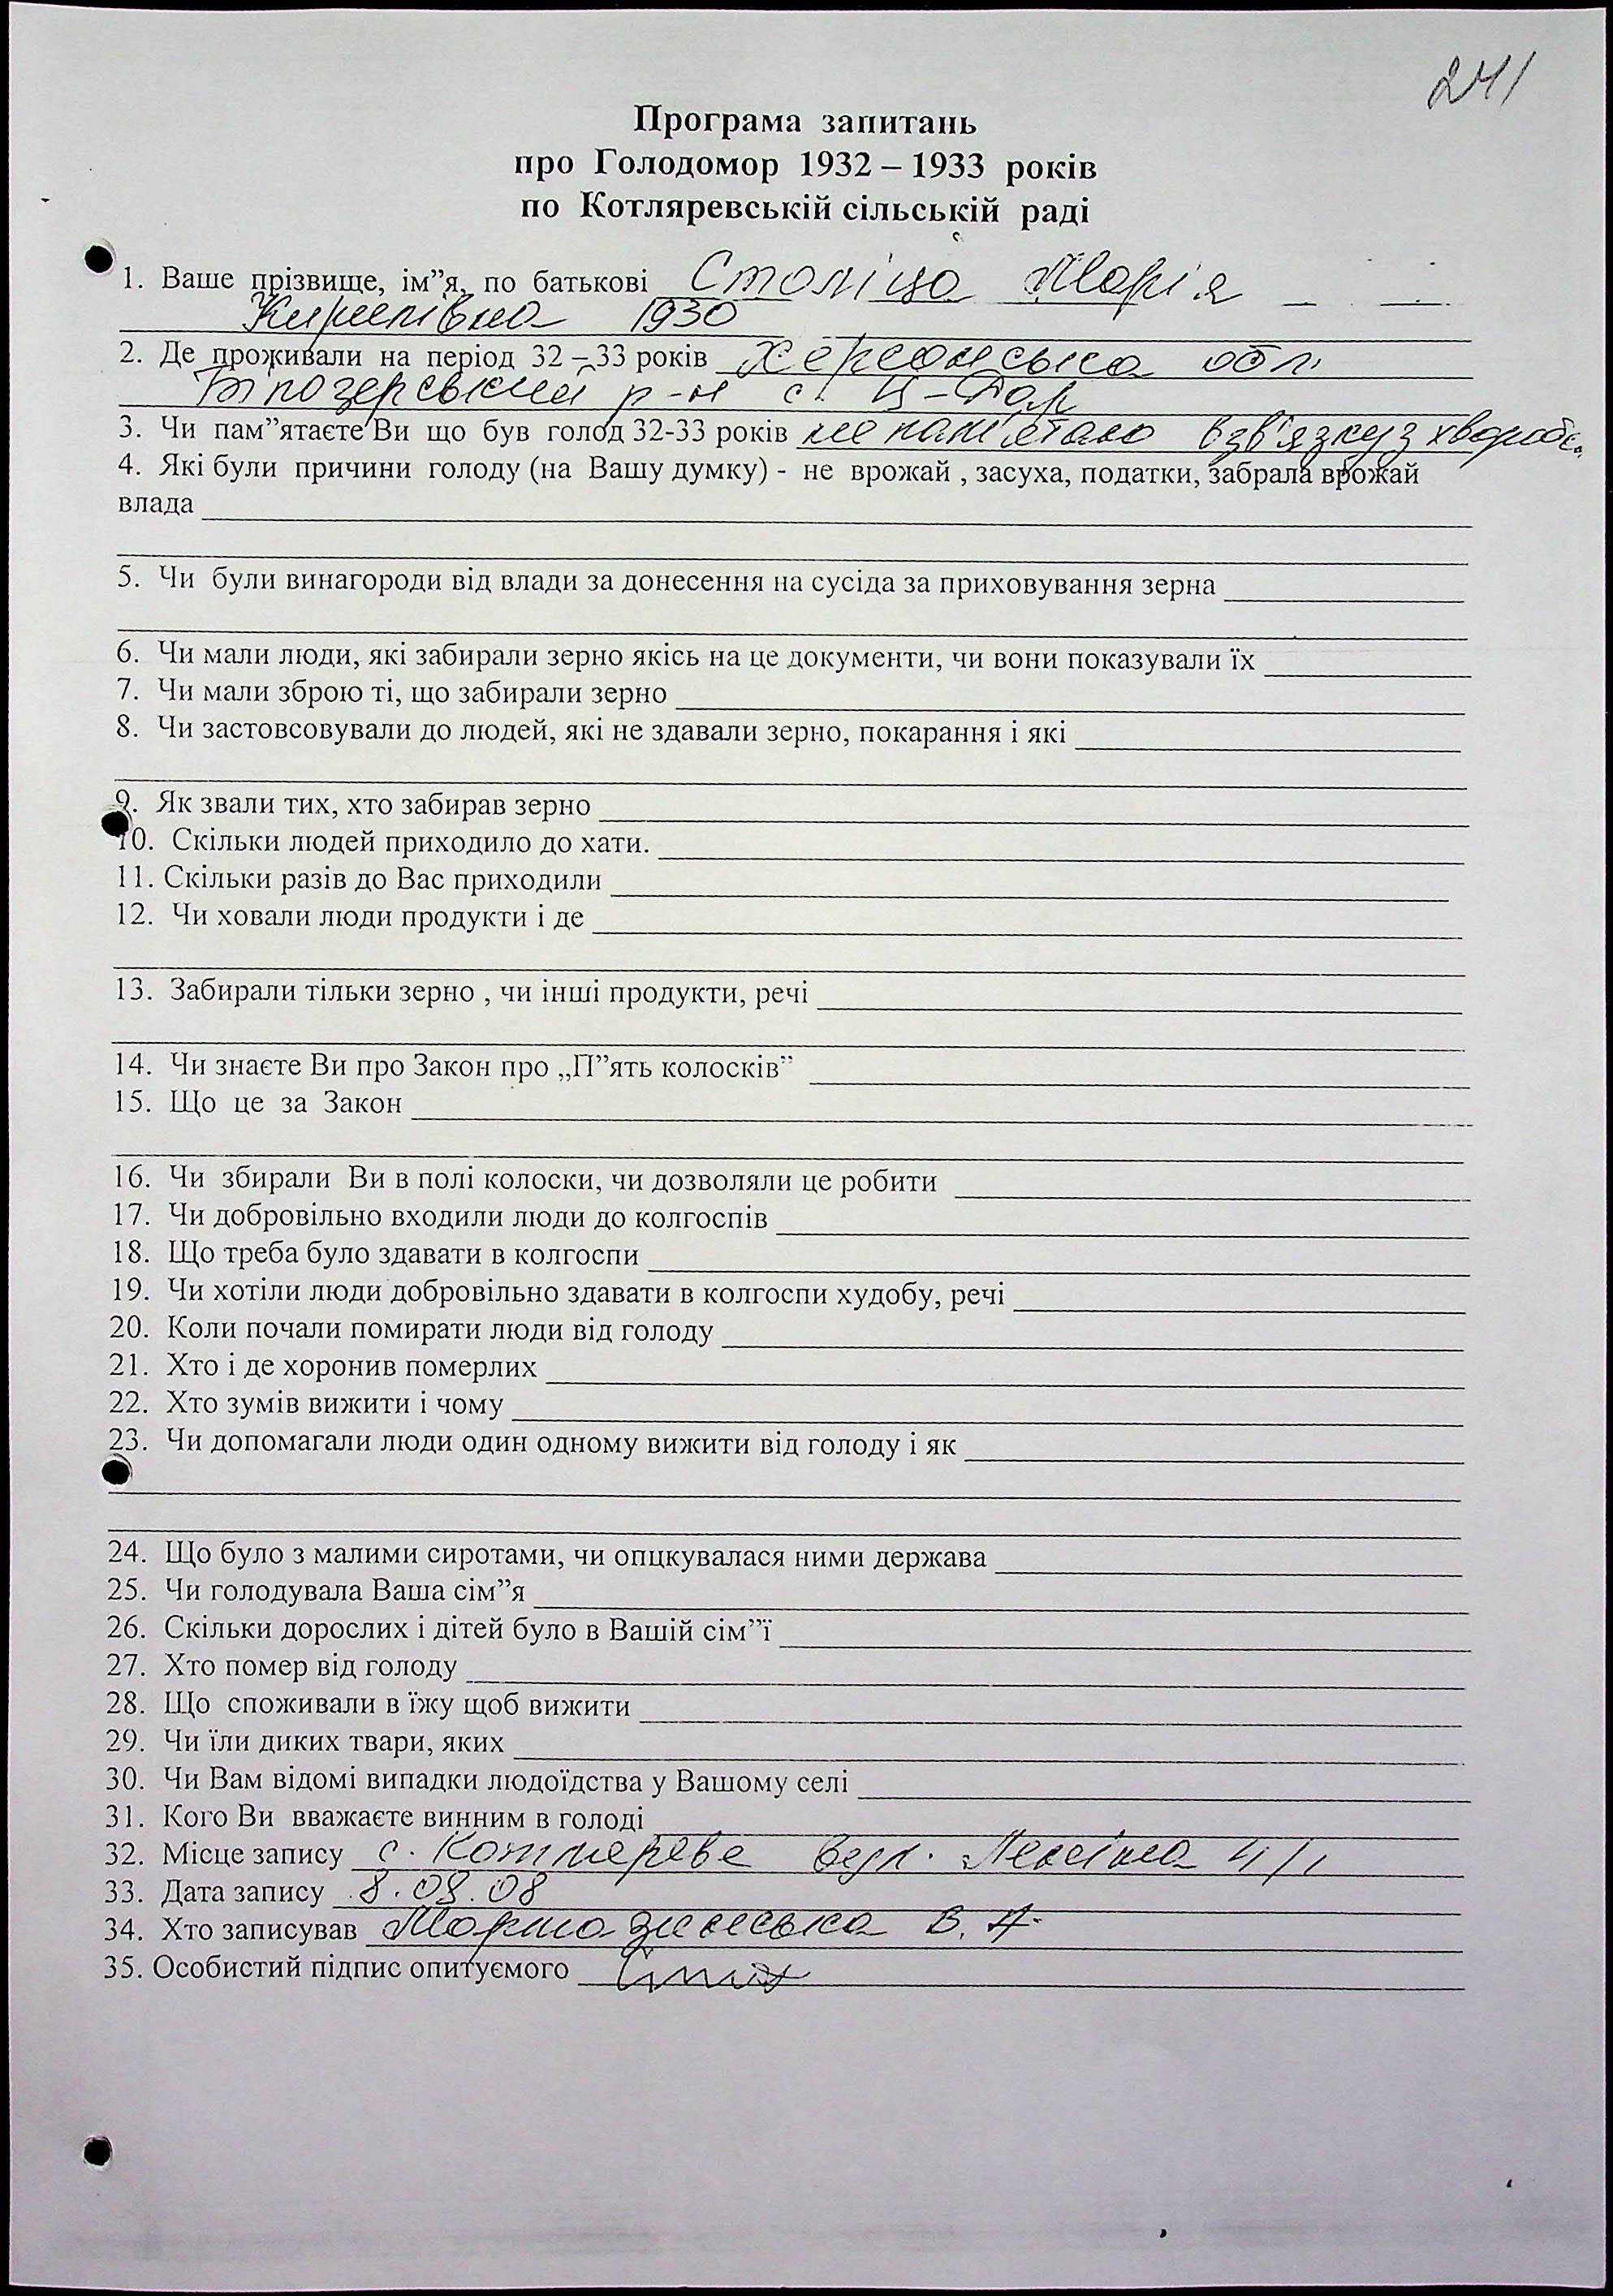 241
Програма запитань
про Голодомор 1932 – 1933 років
по Котляревській сільській раді
1. Ваше прізвище, ім”я, по батькові Століца Марія
Кирилівна 1930
2. Де проживали на період 32 – 33 років Херсонська обл.
Білозерський р-н с.
3. Чи пам”ятаєте Ви що був голод 32-33 років не пам'ятаю взв'язку з хворобою
4. Які були причини голоду (на Вашу думку) - не врожай , засуха, податки, забрала врожай
влада
5. Чи були винагороди від влади за донесення на сусіда за приховування зерна
6. Чи мали люди, які забирали зерно якісь на це документи, чи вони показували їх
7. Чи мали зброю ті, що забирали зерно
8. Чи застовсовували до людей, які не здавали зерно, покарання і які
9. Як звали тих, хто забирав зерно
10. Скільки людей приходило до хати.
11. Скільки разів до Вас приходили
12. Чи ховали люди продукти і де
13. Забирали тільки зерно , чи інші продукти, речі
14. Чи знаєте Ви про Закон про „П”ять колосків”
15. Що це за Закон
16. Чи збирали Ви в полі колоски, чи дозволяли це робити
17. Чи добровільно входили люди до колгоспів
18. Що треба було здавати в колгоспи
19. Чи хотіли люди добровільно здавати в колгоспи худобу, речі
20. Коли почали помирати люди від голоду
21. Хто і де хоронив померлих
22. Хто зумів вижити і чому
23. Чи допомагали люди один одному вижити від голоду і як
24. Що було з малими сиротами, чи опцкувалася ними держава
25. Чи голодувала Ваша сім”я
26. Скільки дорослих і дітей було в Вашій сім”ї
27. Хто помер від голоду
28. Що споживали в їжу щоб вижити
29. Чи їли диких твари, яких
30. Чи Вам відомі випадки людоїдства у Вашому селі
31. Кого Ви вважаєте винним в голоді
32. Місце запису с. Котляреве вул. Леніна 4/1
33. Дата запису 8.09.08
34. Хто записував В. А.
35. Особистий підпис опитуємого